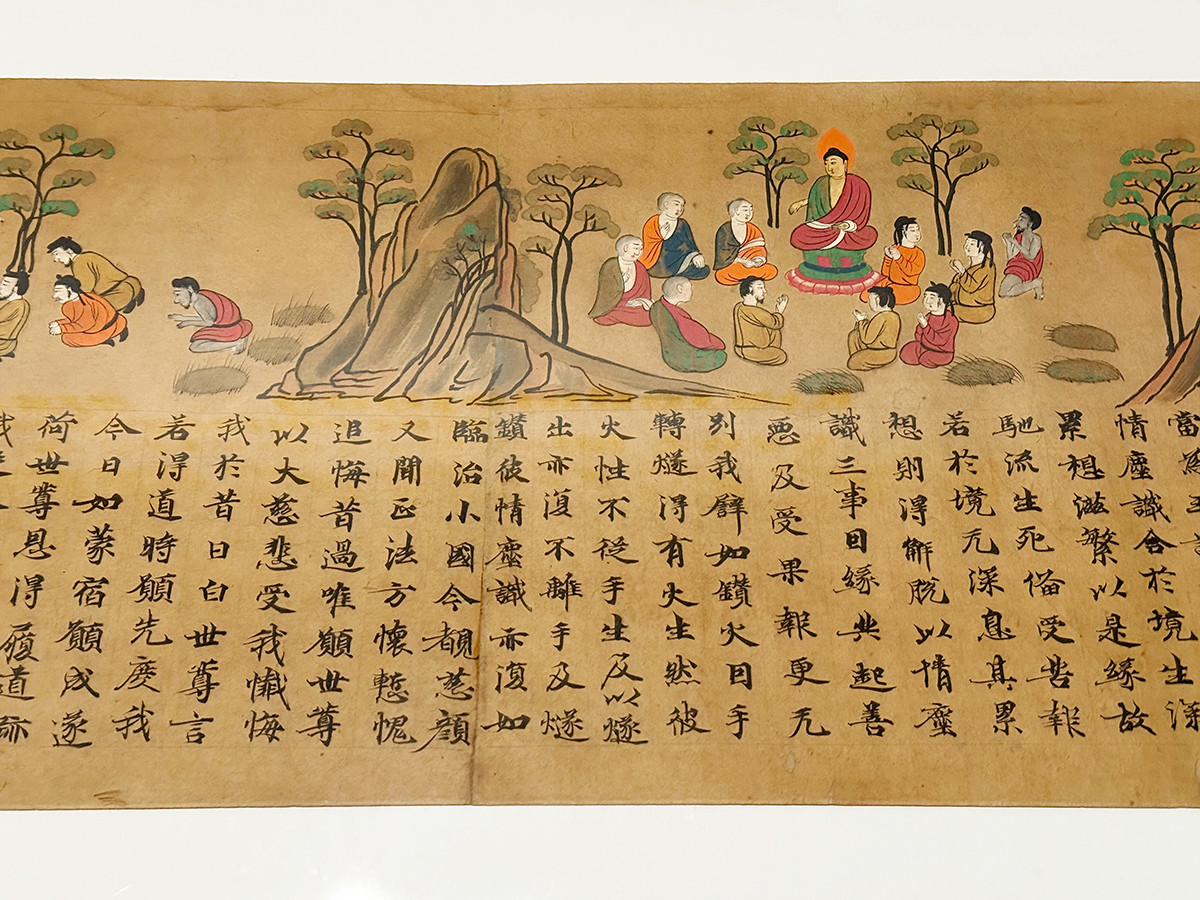 當
情塵識合於境生深
累想滋繁以是緣故
馳流生死備受苦報
若於境无深息其累
想則得解脫以情塵
識三事因緣共起善
惡及受果報更无
別我譬如鑽火因手
轉燧得有火生然彼
火性不從手生及以燧
出亦復不離手及燧
鑽彼情塵識亦復如
臨治小國今覩慈顏
又聞正法方懷慙愧
追悔昔過唯願世尊
以大慈悲受我懺悔
我於昔日白世尊言
若得道時願先度我
今日如蒙宿願成遂
荷世尊恩得履道跡